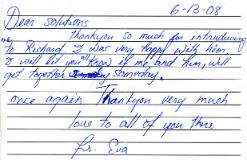 6-13-08
Dear Solutions
thankyou so much for introducing
me to Richard I was very happy with him.
I will let you all know if me and him, will
get together someday.
once again Thankyou very much
love to all of you there
fr. Eva